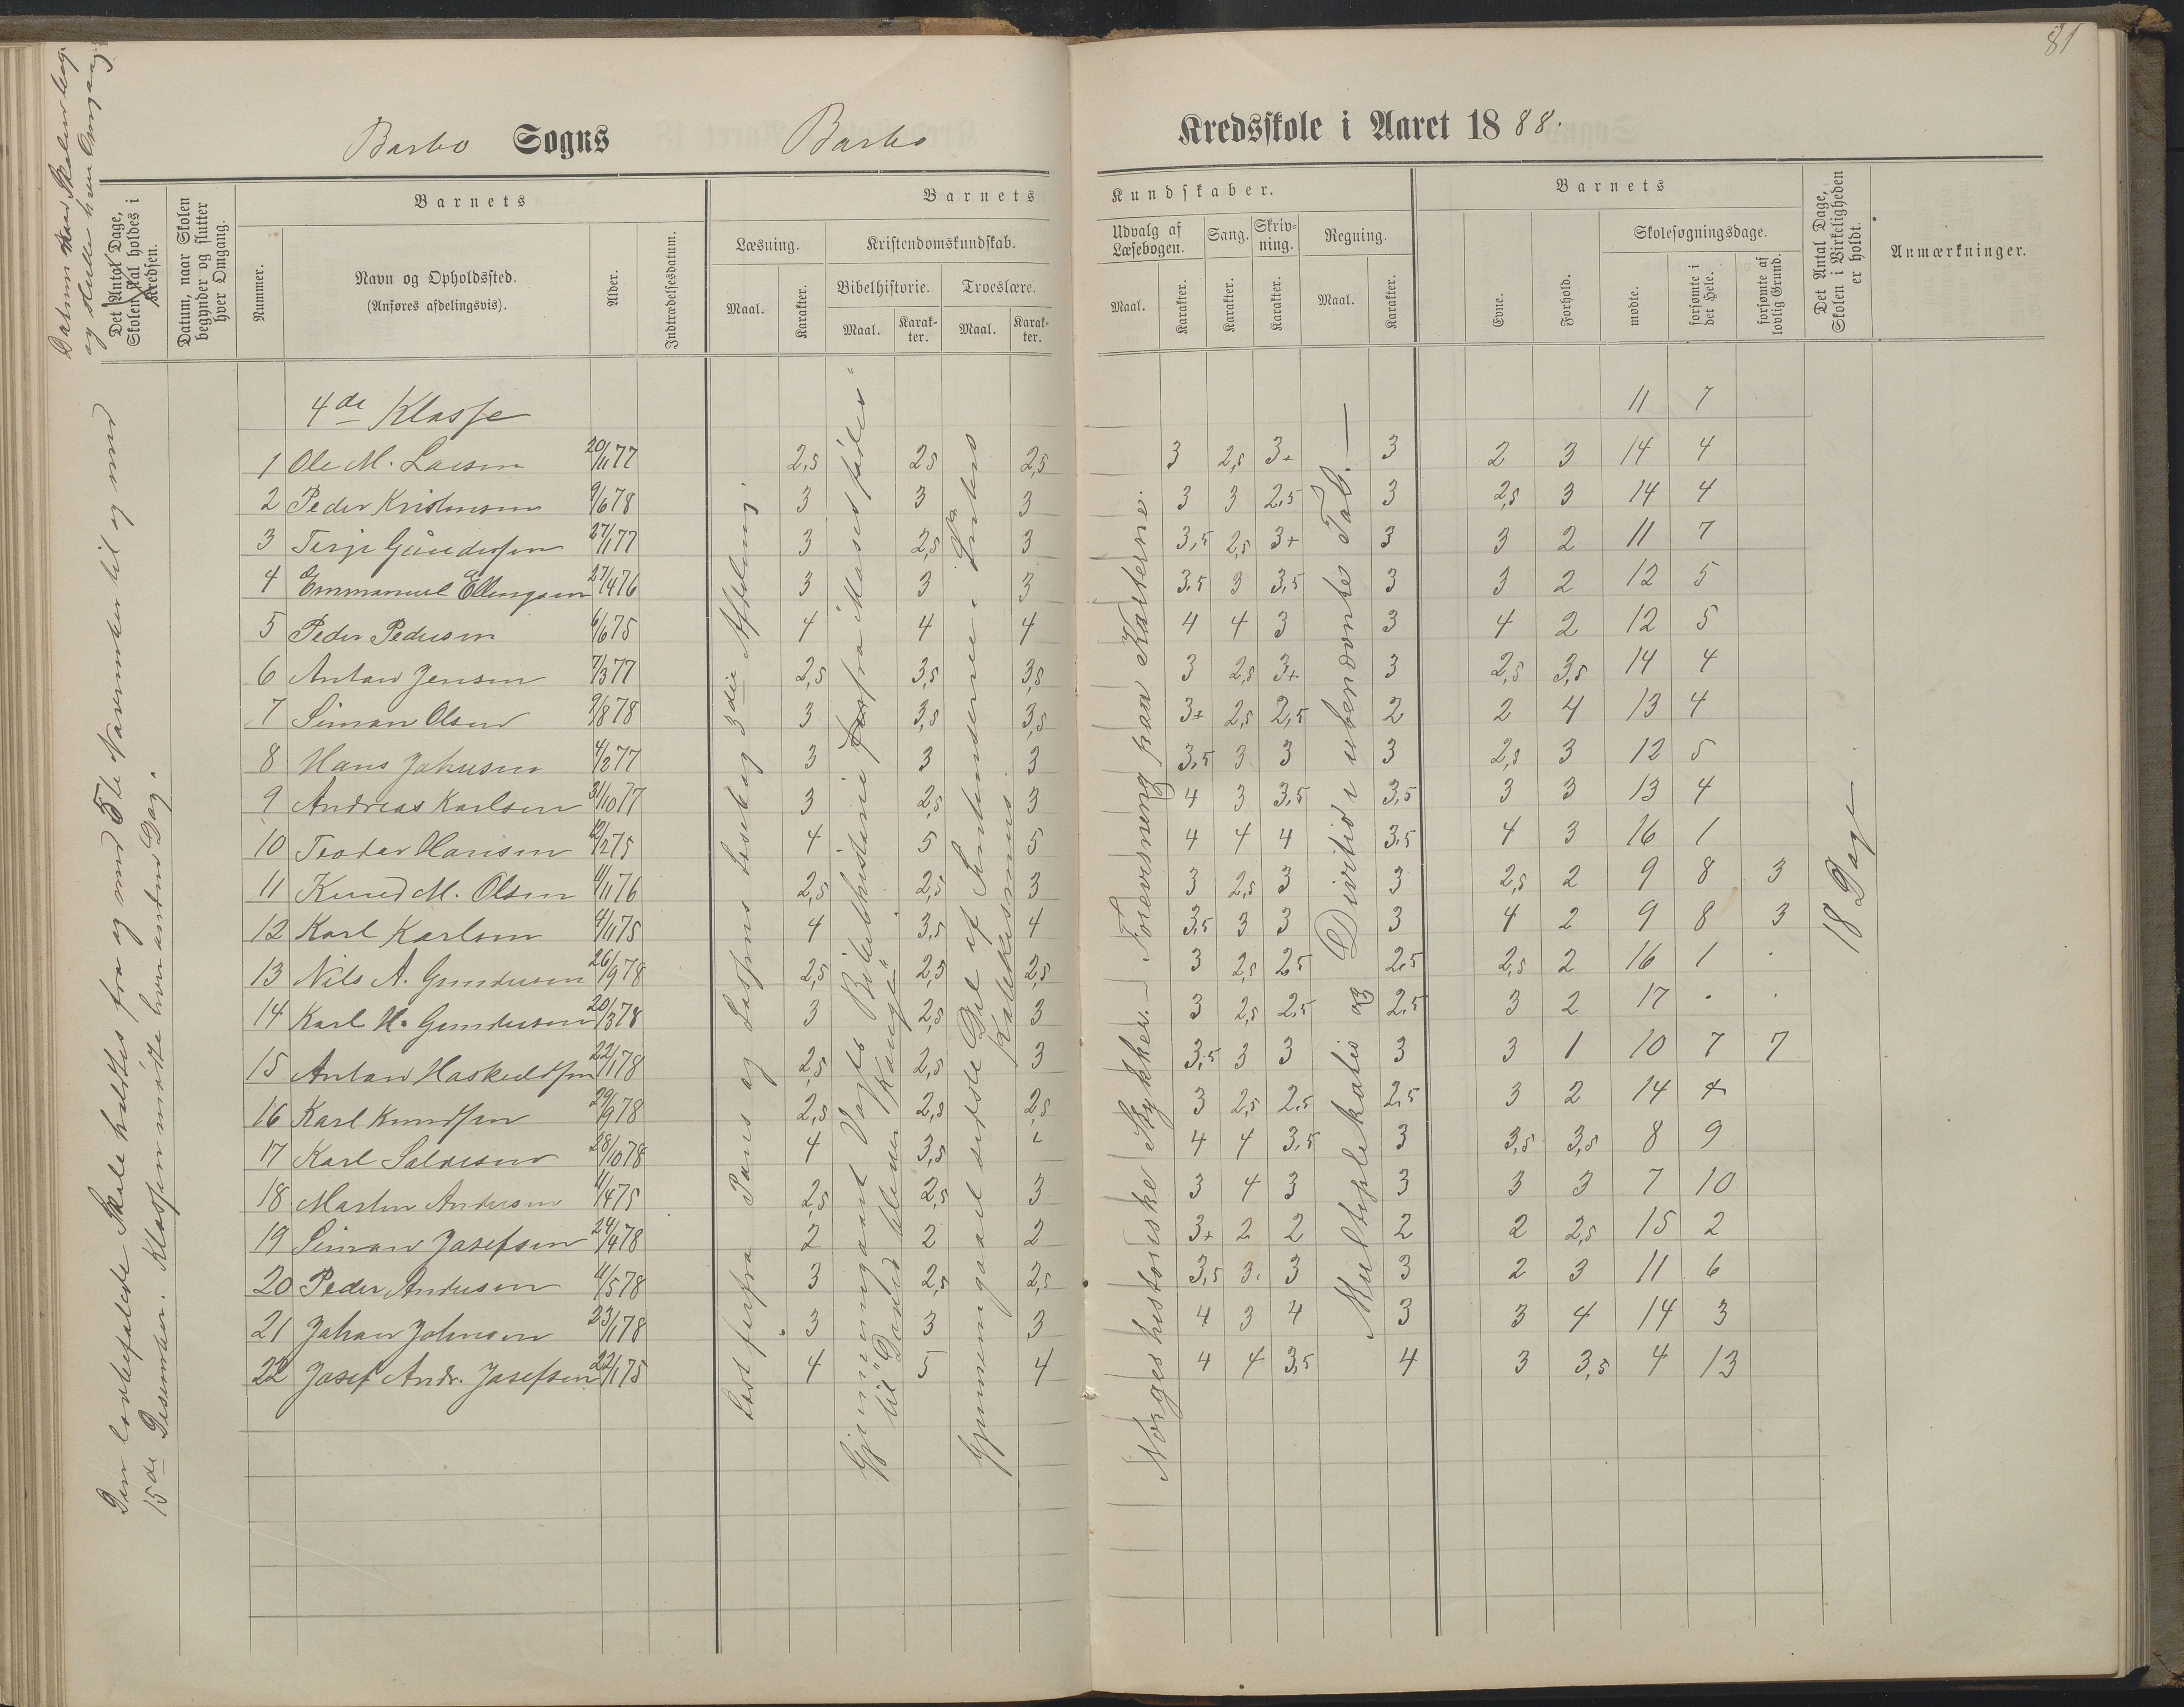 81
Barbo Sogns Barbo Kredsskole i Aaret 1888.
Datum naar Skolen beg.
og slutter hver Omgang
Det Antal Dage, Skolen skal holdes i Kredsen.
Datum, naar Skolen begynder og slutter hver Omgang.
Barnets
Nummer.
Navn og Opholdssted.
(Anføres afdelingsvis).
Alder.
Indtrædelsesdatum.
Barnets Kundskaber.
Læsning.
Maal.
Karakter.
Kristendomskundskab.
Bibelhistorie.
Maal.
Karakter.
Troeslære.
Maal.
Karakter.
Udvalg af Læsebogen.
Maal.
Karakter.
Sang.
Karakter.
Skrivning.
Karakter.
Regning.
Maal.
Karakter.
Barnets
Evne.
Forhold.
Skolesøgningsdage.
mødte.
forsømte i det Hele.
forsømte af lovlig Grund.
Det Antal Dage, Skolen i Virkeligheden er holdt.
Anmærkninger.
Den lovbefalede Skole holdtes fra og med 5te November til og med
15de Desember. Klassen mødte hver anden Dag.
Læst forfra Pauss og Lassens Læsebog 3die Afdeling.
Gjennemgaaet Vogts Bibelhistorie fra "Moses fødes"
til "David bliver Konge"
Gjennemgaaet sidste Del af Sententserne i Luthers
Katekismus
Norges historiske Stykker. Forevisning paa Katterne.
Multiplikation og Division i ubenævnte Tal. —
18 Dage
4de Klasse 11 7
1 Ole M. Larsen 20/11 77 2,5 2,5 2,5 3 2,5 3+ 3 2 3 14 4
2 Peder Kristensen 9/6 78 3 3 3 3 3 2,5 3 2,5 3 14 4
3 Terje Gundersen 27/1 77 3 2,5 3 3,5 2,5 3+ 3 3 2 11 7
4 Emmanuel Ellingsen 27/4 76 3 3 3 3,5 3 3,5 3 3 2 12 5
5 Peder Pedersen 6/6 75 4 4 4 4 4 3 3 4 2 12 5
6 Anton Jensen 7/3 77 2,5 3,5 3,5 3 2,5 3+ 3 2,5 3,5 14 4
7 Simon Olsen 9/8 78 3 3,5 3,5 3+ 2,5 2,5 2 2 4 13 4
8 Hans Johnsen 4/2 77 3 3 3 3,5 3 3 3 2,5 3 12 5
9 Andreas Karlsen 31/10 77 3 2,5 3 4 3 3,5 3,5 3 3 13 4
10 Teodor Hansen 12/2 75 4 5 5 4 4 4 3,5 4 3 16 1
11 Knud M. Olsen 11/11 76 2,5 2,5 3 3 2,5 3 3 2,5 2 9 8 3
12 Karl Karlsen 4/11 75 4 3,5 4 3,5 3 3 3 4 2 9 8 3
13 Nils A. Gundersen 26/9 78 2,5 2,5 2,5 3 2,5 2,5 2,5 2,5 2 16 1 .
14 Karl H. Gundersen 20/3 78 3 2,5 3 3 2,5 2,5 2,5 3 2 17 . .
15 Anton Haskeldsen 22/1 78 2,5 2,5 3 3,5 3 3 3 3 1 10 7 7
16 Karl Knudsen 29/9 78 2,5 2,5 2,5 3 2,5 2,5 2,5 3 2 14 4
17 Karl Salvesen 28/10 78 4 3,5 4 4 3,5 3 3,5 3,5 8 9
18 Martin Andersen 4/4 75 2,5 2,5 3 3 4 3 3 3 3 7 10
19 Simon Josefsen 24/4 78 2 2 2 3+ 2 2 2 2 2,5 15 2
20 Peder Andersen 4/5 78 3 2,5 2,5 3,5 3. 3 3 2 3 11 6
21 Johan Johnsen 23/1 78 3 3 3 4 3 4 3 3 4 14 3
22 Josef Andr. Josefsen 22/1 75 4 5 4 4 4 3,5 4 3 3,5 4 13